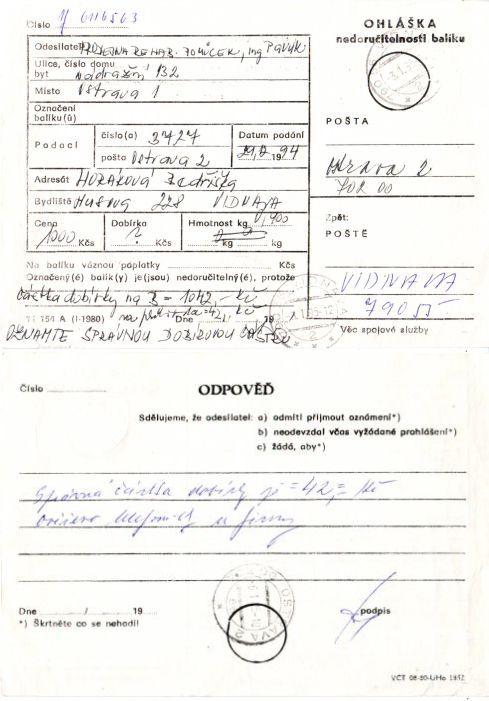 Číslo 6116563
OHLÁŠKA
nedoručitelnosti balíku
Odesílatel PRODEJNA REHAB. POMŮCEK, ing Pavlík
Ulice, číslo domu
byt nádražní 132
Místo Ostrava 1
Označení
balíku(ů)
POŠTA
Podací číslo(a) 3727 Datum podání
pošta Ostrava 2 1994
Ostrava 2
Adresát HORÁKOVÁ Bedřiška
Bydliště Husova 228 VIDNAVA
Zpět:
POŠTĚ
Cena Dobírka Hmotnost kg 0,400
1000 Kčs ? Kčs kg
Na balíku váznou poplatky Kčs
Označený(é) balík(y) je(jsou) nedoručitelný(é), protože
VIDNAVA
79055
částka dobírky na = 1042,- Kč
11 154 A (I-1980) na Dne 19
Věc spojové služby
OZNAMTE SPRÁVNOU DOBÍRKOVOU ČÁSTKU
Číslo
ODPOVĚĎ
Sdělujeme, že odesílatel: a) odmítl přijmout oznámení*)
b) neodevzdal včas vyžádané prohlášení*)
c) žádá, aby*)
Správná částka dobírky je =42,= Kč
ověřeno telefonicky u firmy
OSTRAVA 2
Dne / 19
podpis
*) Škrtněte co se nehodí!
VCT 08-80-UHo 1852